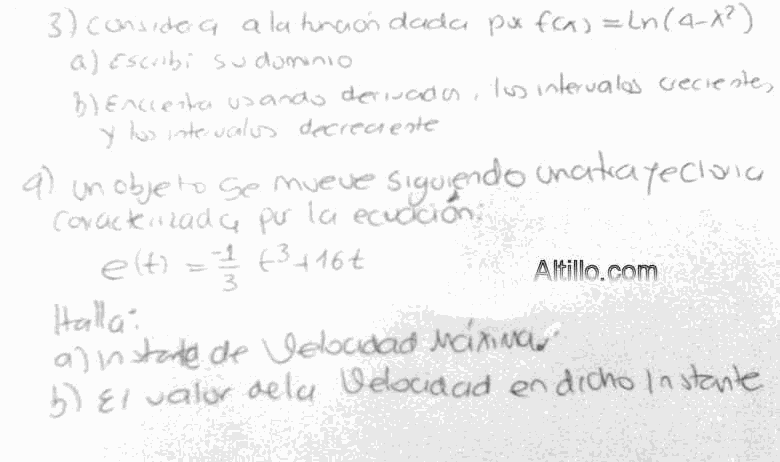 3) Considera a la función dada por f(x) = Ln(4-x²)
a) Escribí su dominio
b) Encuentra usando derivadas, los intervalos crecientes,
y los intervalos decreciente
4) un objeto se mueve siguiendo una trayectoria
caracterizada por la ecuación:
e(t) = -1/3 t³+16t
Altillo.com
Halla:
a) Instante de Velocidad Máxima.
b) El valor de la Velocidad en dicho Instante